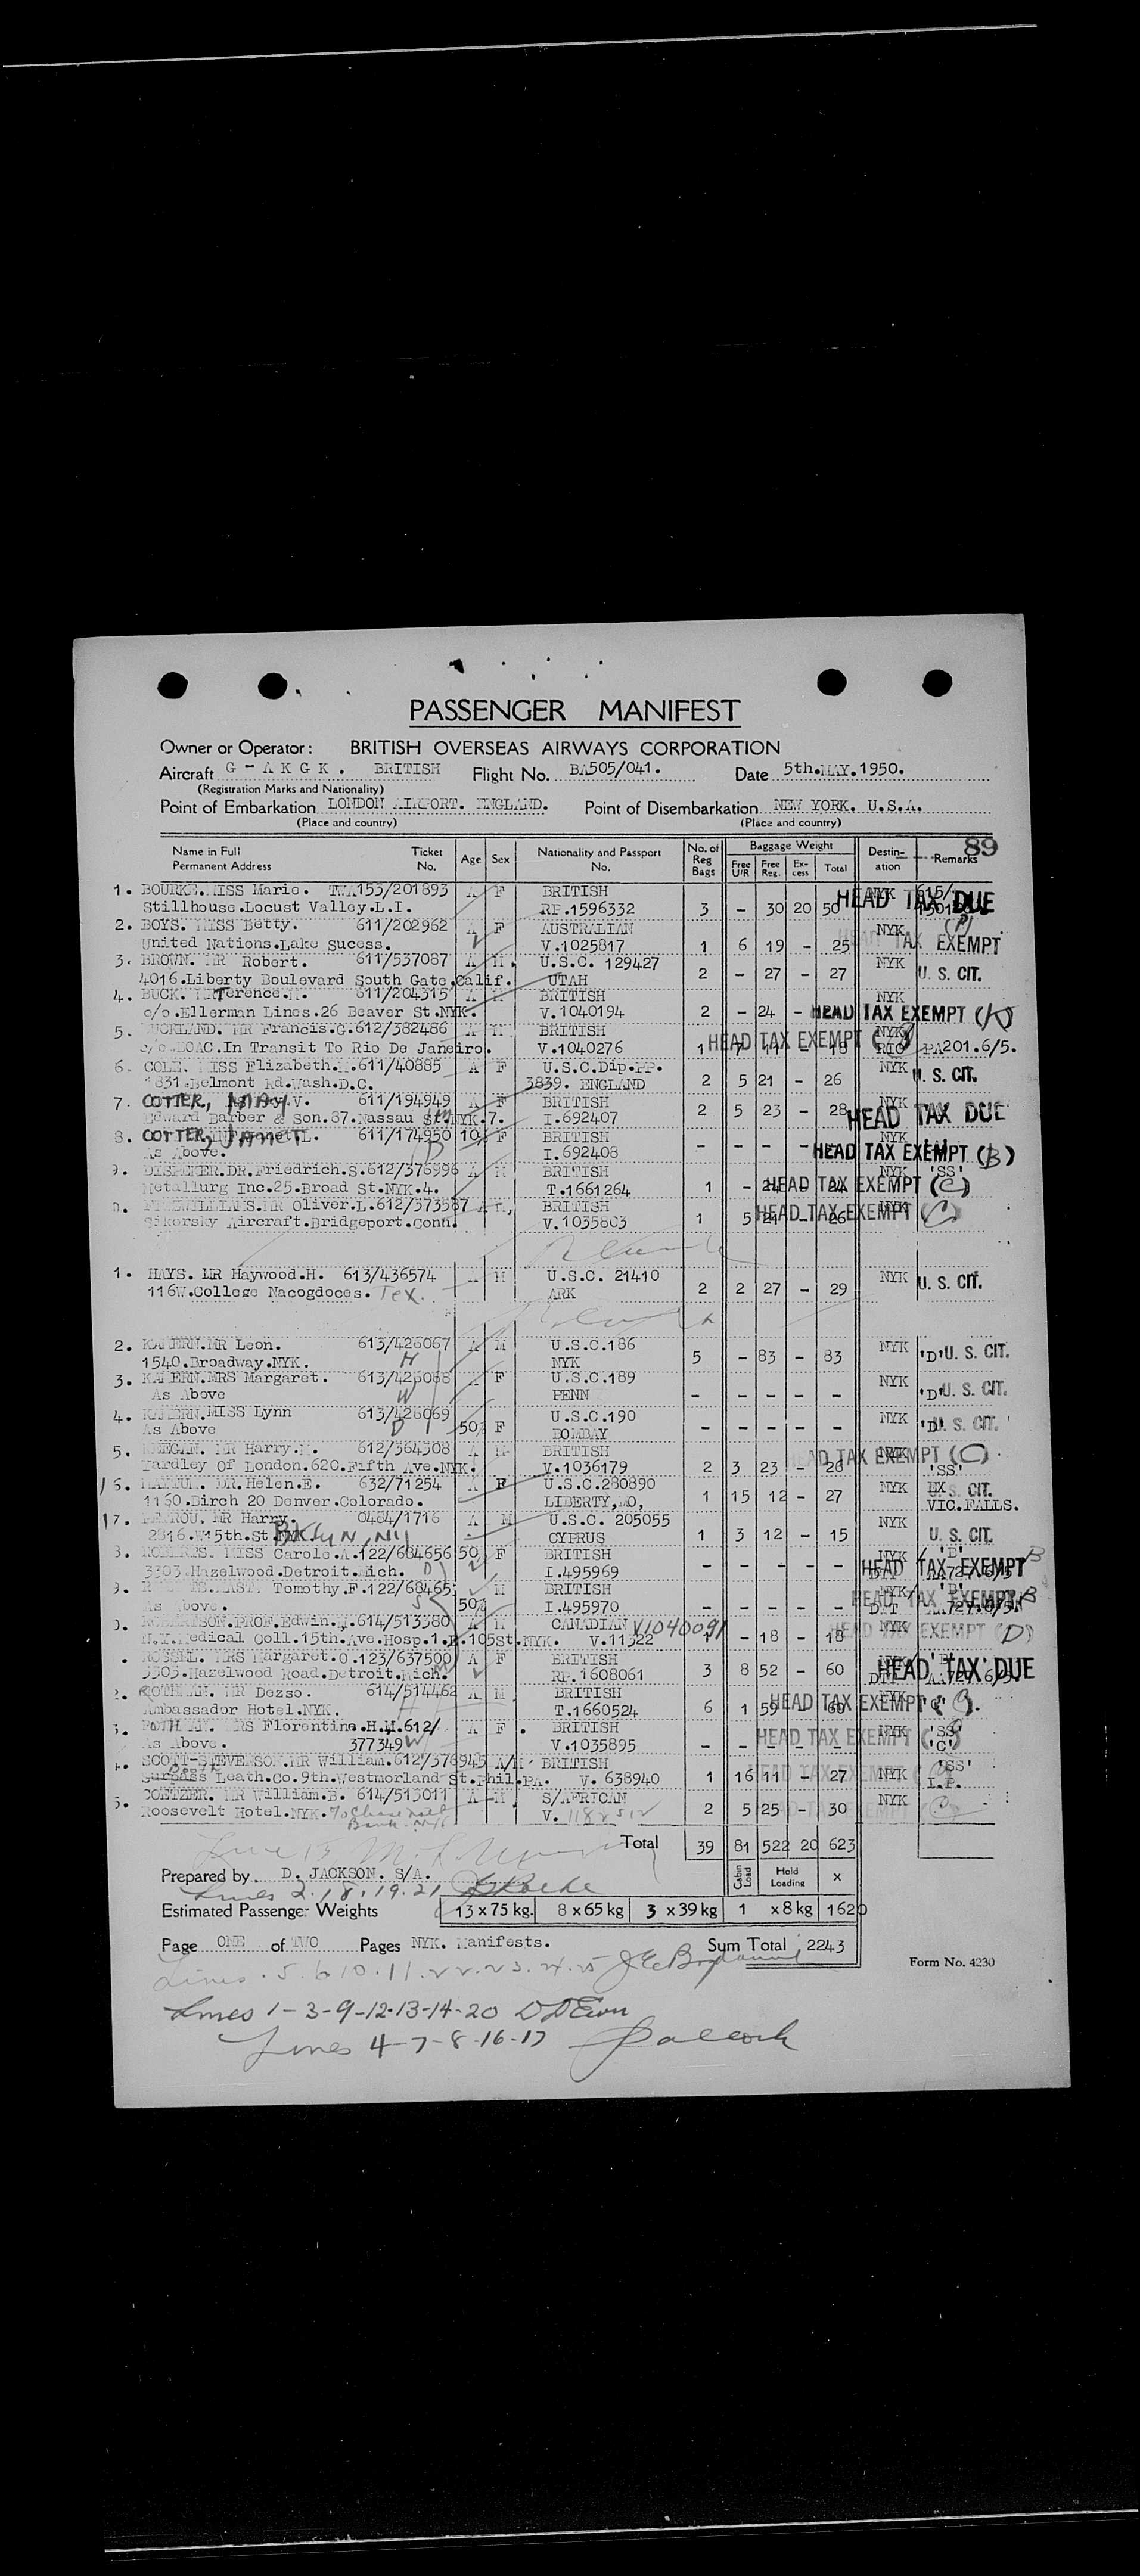 PASSENGER MANIFEST
Owner or Operator: BRITISH OVERSEAS AIRWAYS CORPORATION
Aircraft G-AKGK. BRITISH Flight No. BA505/041. Date 5th.MAY.1950.
(Registration Marks and Nationality)
Point of Embarkation LONDON AIRPORT. ENGLAND. Point of Disembarkation NEW YORK. U.S.A.
(Place and country) (Place and country)
89
Name in Full Ticket Age Sex Nationality and Passport No. of Baggage Weight Destin- Remarks
Permanent Address No. No. Reg Bags Free U/R Free Reg. Ex-cess Total ation
1. BOURKE.MISS Marie. 153/201893 A F BRITISH NYK HEAD TAX DUE
Stillhouse.Locust Valley.L.I. RP.1596332 3 - 30 20 50
2. BOYS. MISS Betty. 611/202962 A F AUSTRALIAN NYK
United Nations.Lake Sucess. V.1025817 1 6 19 - 25 HEAD TAX EXEMPT
3. BROWN. MR Robert. 611/537087 A M. U.S.C. 129427 NYK
4016.Liberty Boulevard South Gate.Calif. UTAH 2 - 27 - 27 U. S. CIT.
4. BUCK. MR Terence. 611/204315 A M BRITISH NYK
c/o.Ellerman Lines.26 Beaver St.NYK. V.1040194 2 - 24 - HEAD TAX EXEMPT (K)
5. MR Francis.G.612/382486 A M BRITISH NYK HEAD TAX EXEMPT
c/o.BOAC.In Transit To Rio De Janeiro. V.1040276 1 7 11 - 18 RIO PA201.6/5.
6. COLE. MISS Elizabeth.M.611/40885 A F U.S.C.Dip.PP. NYK
1831.Belmont Rd.Wash.D.C. 3839. ENGLAND 2 5 21 - 26 U. S. CIT.
7. COTTER, MAY.V. 611/194949 A F BRITISH NYK
Edward Barber & Son.87.Nassau St.NYK.7. I.692407 2 5 23 - 28 HEAD TAX DUE
8. COTTER, JANET L. 611/174950 10% F BRITISH NYK
As Above. I.692408 - - - - HEAD TAX EXEMPT (B)
9. DR.Friedrich.S.612/376996 A M BRITISH NYK 'SS'
Metallurg Inc.25.Broad St.NYK.4. T.1661264 1 - HEAD TAX EXEMPT (C)
MR Oliver.L.612/373587 A BRITISH NYK
Sikorsky Aircraft.Bridgeport.Conn. V.1035803 1 5 21 - 26 HEAD TAX EXEMPT (C)
1. HAYS. MR Haywood.H. 613/436574 M U.S.C. 21410 NYK U. S. CIT.
116W.College Nacogdoces. Tex. ARK 2 2 27 - 29
2. MR Leon. 613/426067 A M U.S.C.186 NYK 'D' U. S. CIT.
1540.Broadway.NYK. H NYK 5 - 83 - 83
3. MRS Margaret. 613/426068 A F U.S.C.189 NYK
As Above W PENN - - - - - 'D' U. S. CIT.
4. MISS Lynn 613/426069 U.S.C.190 NYK
As Above D 50% F BOMBAY - - - - - 'D' U. S. CIT.
5. MR Harry. 612/364508 A M BRITISH NYK HEAD TAX EXEMPT (C)
Yardley Of London.620.Fifth Ave.NYK. V.1036179 2 3 23 - 26 'SS'
16. DR.Helen.E. 632/71254 A F U.S.C.280890 NYK EX U. S. CIT.
1160.Birch 20 Denver.Colorado. LIBERTY,MO, 1 15 12 - 27 VIC.FALLS.
17. MR Harry. 0484/1716 A M U.S.C. 205055 NYK
2816.W15th.St. BKLYN, NY CYPRUS 1 3 12 - 15 U. S. CIT.
MISS Carole.A.122/684656 50 F BRITISH NYK 'B'
3303.Hazelwood.Detroit.Mich. D I.495969 - - - - - HEAD TAX EXEMPT B
9. Tomothy.F.122/68465 M BRITISH NYK 'B' HEAD TAX EXEMPT B
As Above. S 50% I.495970 - - - - -
PROF.Edwin. 614/513380 A M CANADIAN V1040091 NYK HEAD TAX EXEMPT (D)
N.Y.Medical Coll.15th.Ave.Hosp.1.E.105St.NYK. V.11322 1 - 18 - 18
MRS Margaret.O.123/637500 A F BRITISH NYK
3303.Hazelwood Road.Detroit.Mich. RP.1608061 3 8 52 - 60 HEAD TAX DUE
2. ROTHMAN. MR Dezso. 614/514462 A M BRITISH NYK
Ambassador Hotel.NYK. T.1660524 6 1 59 - 60 HEAD TAX EXEMPT
MRS Florentina.H.M.612/ A F. BRITISH NYK 'SS'
As Above. 377349 W V.1035895 - - - - - HEAD TAX EXEMPT 'C'
SCOTT-STEVENSON.MR William.612/376945 A/M BRITISH 'SS'
Surpass Leath.Co.9th.Westmorland St.Phil.PA. V. 638940 1 16 11 - 27 NYK
5. COETZER. MR William.B. 614/513011 A M S/AFRICAN NYK
Roosevelt Hotel.NYK. V. 2 5 25 - 30
Total 39 81 522 20 623
Prepared by D. JACKSON. S/A. Cabin Load Hold Loading X
Lines 2.18.19.21
Estimated Passenger Weights 13 x 75 kg. 8 x 65 kg 3 x 39 kg 1 x 8 kg 1620
Page ONE of TWO Pages NYK. Manifests. Sum Total 2243
Form No. 4230
Lines 1-3-9-12-13-14-20
Lines 4-7-8-16-17